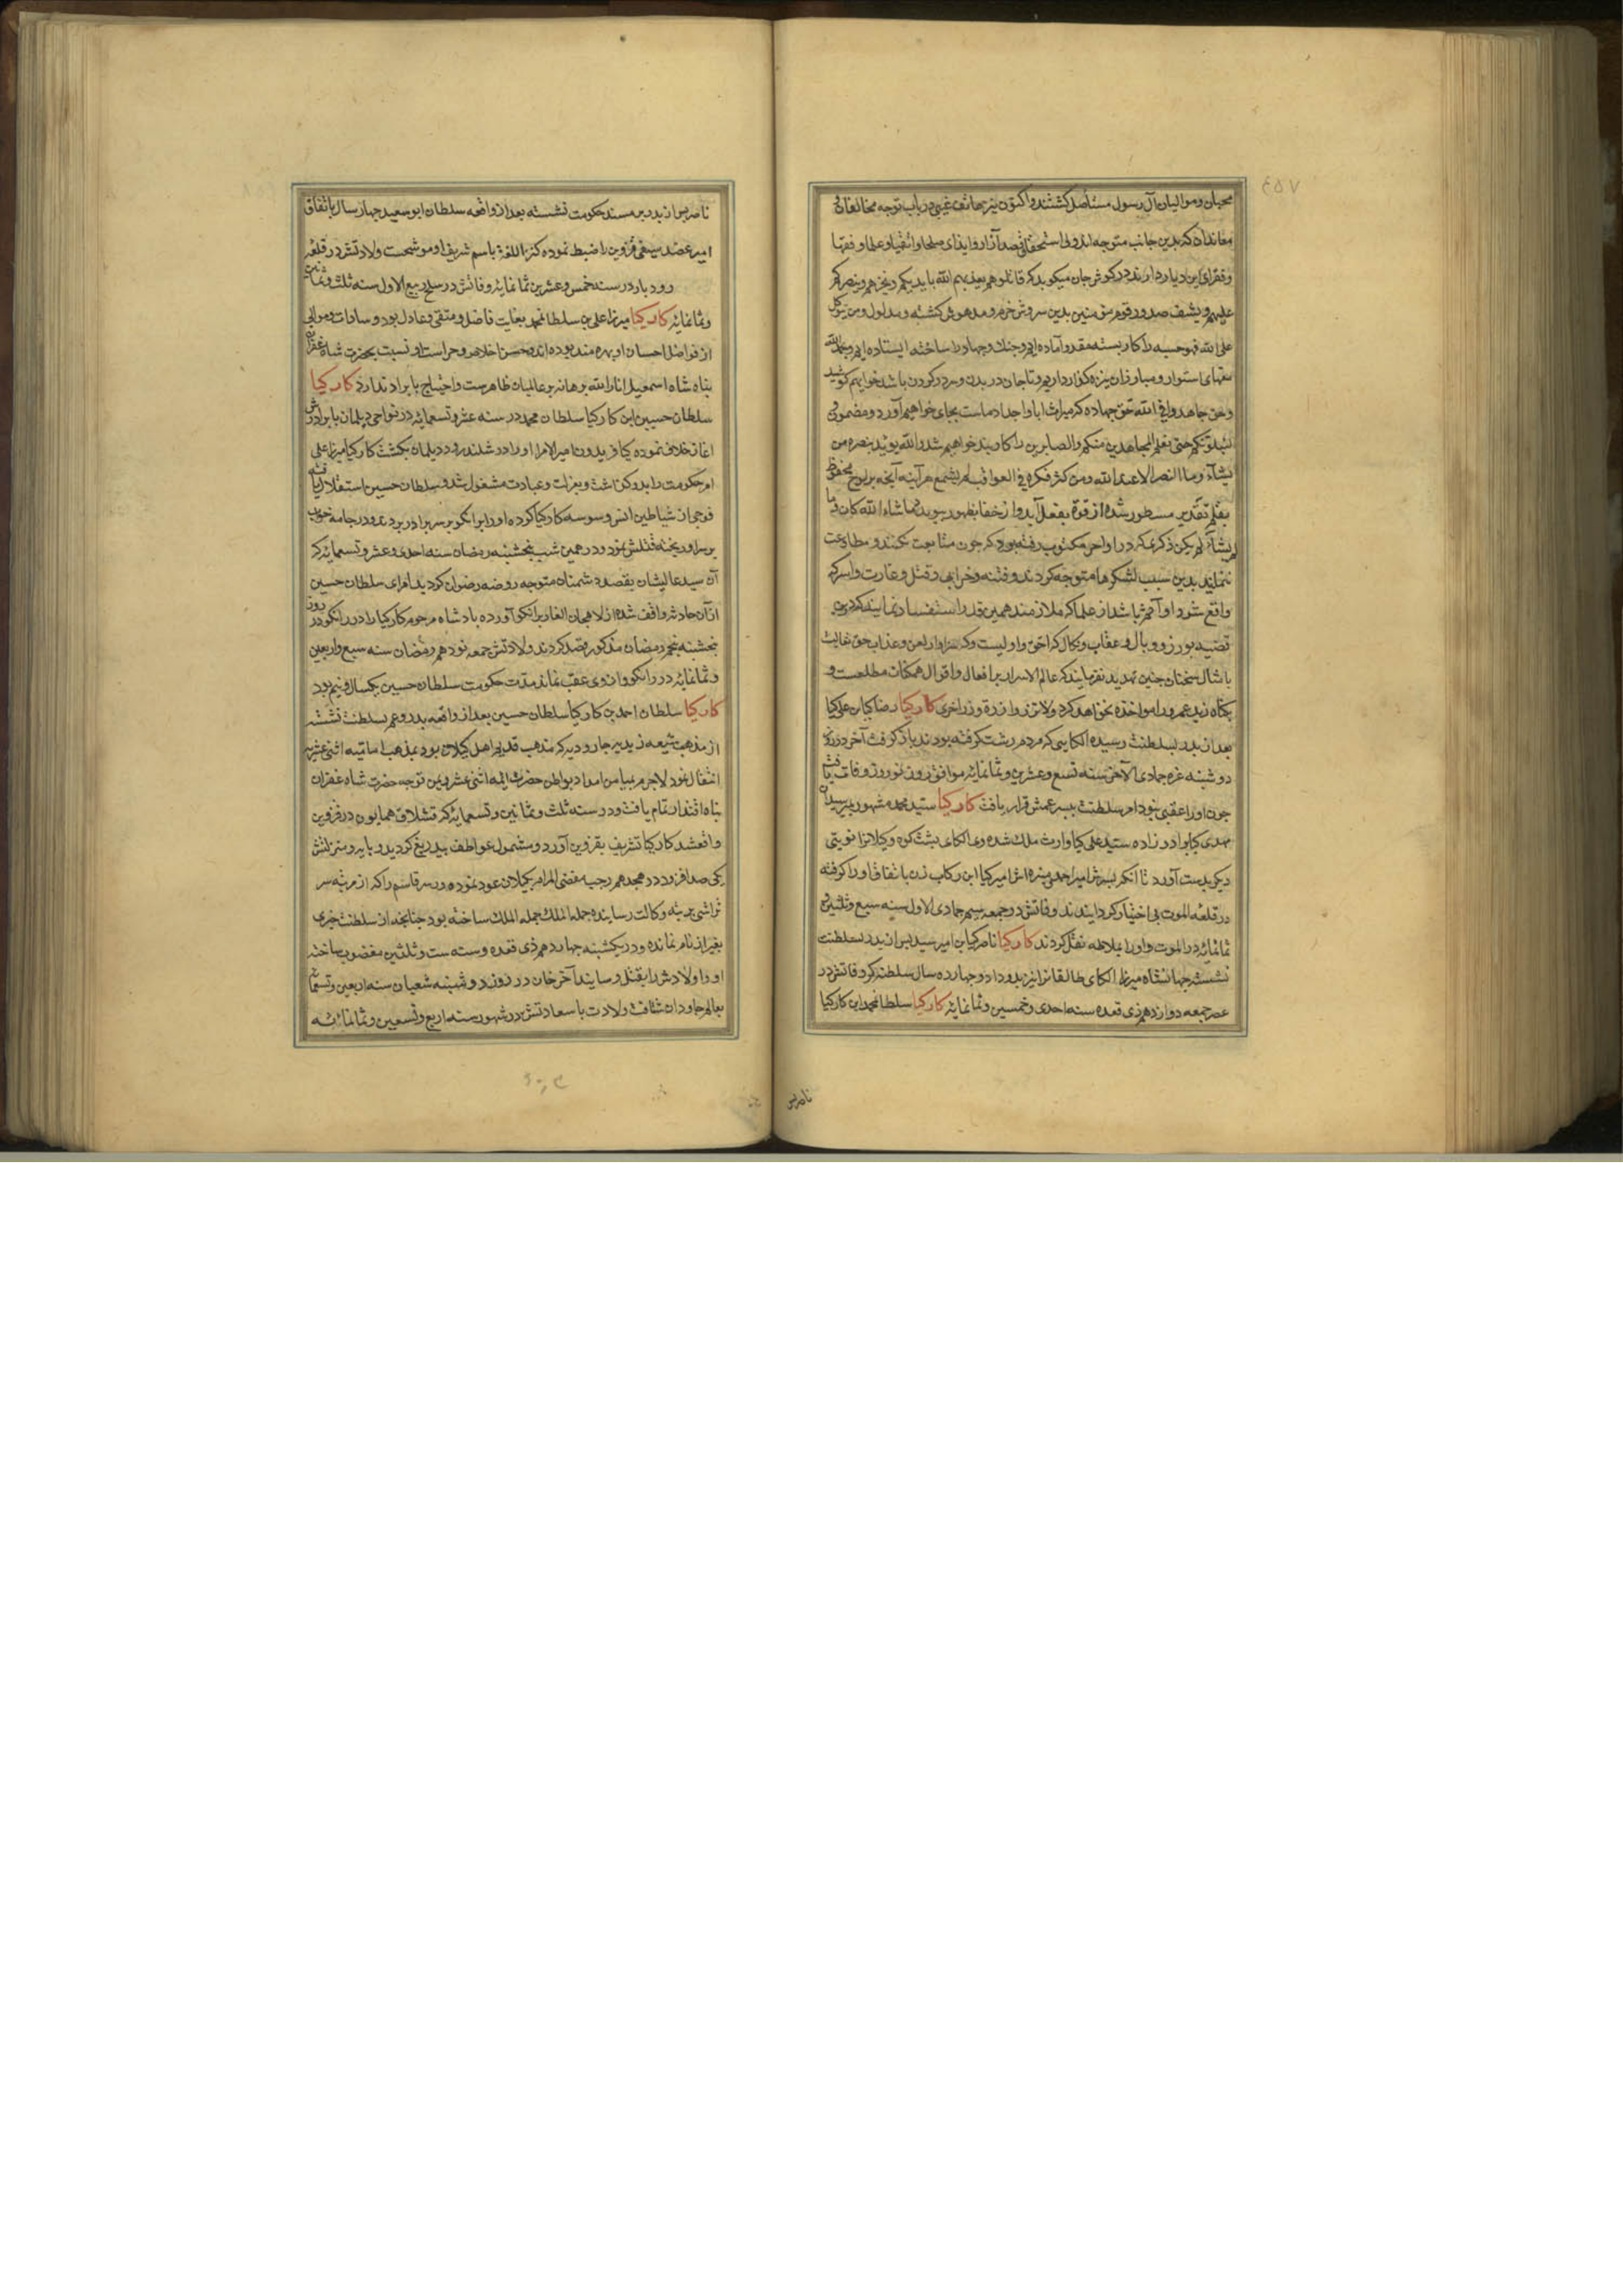 محبان و موالیان آل رسول مستأصل کشتند و اکنون نیز هاتف غیبی در باب توجه مخالفان
معاندان که بدین جانب متوجه اند و بی استحقاقی قصد آزار و ایذای صلحا و اتقیا و علما و فقها
و فقرای این دیار دارند در کوش جان میکوید که قاتلوهم یعذبهم الله بایدیکم و یخزهم و ینصرکم
علیهم و یشف صدور قوم مؤمنین بدین سروش خرم و مدهوش کشته و مدلول و من یتوکل
علی الله فهو حسبه را کار بسته مقدر و آماده ایم و جنک و جهاد را ساخته ایستاده ایم و بحمدالله
سقهای استوار و مبارزان نیزه کذار داریم و تا جان در بدن و سر در کردن باشد خواهیم کوشید
و حق جاهدوا فی الله حق جهاده که میراث ابا و اجداد ماست بجای خواهیم آورد و مضمون
لنبلونکم حتی نعلم المجاهدین منکم و الصابرین را کاربند خواهیم شد والله یؤید بنصره من
یشآء و ما النصر الا عند الله و من کثر فکره فی العواقب لم یشجع هر آینه آنچه بر لوح محفوظ
بقلم تقدیر مسطور شده از قوة بفعل آید و از خفا بظهور پیوندد ماشاء الله کان و ما
لم یشآء لم یکن ذکری که در اواخر مکتوب رفته بود که چون متابعت نکنند و مطاوعت
ننمایند بدین سبب لشکرها متوجه کردند و فتنه و خرابی و قتل و غارت و اسر که
واقع شود او آثم باشد از علما که ملازمند همین قدر استفسار نمایند که درین
قضیه بوزر و وبال و عقاب و نکال که احق و اولیست و که سزاوار لعن و عذاب حق تعالیست
بامثال سخنان چنین تهدید نفرمایند که عالم الاسرار بر افعال و اقوال همکنان مطلعست و
بکناه زید عمرو را مواخذه نخواهد کرد و لا تزر وازرة وزر اخری کارکیا رضا کیا بن علی کیا
بعد از پدر بسلطنت رسیده الکایی که مردم رشت کرفته بودند باز کرفت آخر در روز
دوشنبه غره جمادی الآخر سنه تسع و عشرین و ثمانمایه موافق روز نوروز وفات یافت
چون او را عقبی نبود امر سلطنت به پسر عمش قرار یافت کارکیا سید محمد مشهور بمیر سید بن
مهدی کیا برادرزاده سید علی کیا وارث ملک شده وی الکای پشت کوه و کیلانرا نوبتی
دیکر بدست آورد تا آنکه پسرش امیر احمد و نبیره اش امیر کیا ابن رکاب زن باتفاق او را کرفته
در قلعه الموت بی اختیار کردانیدند وفاتش در جمعه سیم جمادی الاول سنه سبع و ثلثین و
ثمانمایه در الموت و او را بملاط نقل کردند کارکیا ناصر کیا بن امیر سید پس از پدر بسلطنت
نشسته جهانشاه میرزا الکای طالقانرا نیز بدو داد و چهارده سال سلطنت کرد وفاتش در
عصر جمعه دوازدهم ذی قعده سنه احدی و خمسین و ثمانمایه کارکیا سلطان محمد ابن کارکیا
ناصر پس
ناصر پس از پدر بر مسند حکومت نشسته بعد از واقعه سلطان ابوسعید چهار سال باتفاق
امیر عضد سیفی قزوین را ضبط نموده کنز اللغة باسم شریف او موشحست ولادتش در قلعه
رودبار در سنه خمس و عشرین ثمانمایه وفاتش در سلخ ربیع الاول سنه ثلث و ثمانین
و ثمانمایه کارکیا میرزا علی بن سلطان محمد بغایت فاضل و متقی و عادل بود و سادات و موالی
از فواضل احسان او بهره مند بوده اند و حسن اخلاص و حراست او نسبت بحضرت شاه غفران
پناه شاه اسمعیل انار الله برهانه بر عالمیان ظاهرست و احتیاج بایراد ندارد کارکیا
سلطان حسین ابن کارکیا سلطان محمد در سنه عشر و تسعمایه در نواحی دیلمان با برادرش
آغاز خلاف نموده کیا فریدون امیر الامرا او را در شلندرود دیلمان بکشت کارکیا میرزا علی
امر حکومت را بدو کذاشت و بعزلت و عبادت مشغول شد و سلطان حسین استقلال یافته
فوجی از شیاطین انس وسوسه کارکیا کرده او را برانکو بر سر برادر برد و در جامه خواب
بر سر او ریخته قتلش نمود و در همین شب پنجشنبه رمضان سنه احدی و عشر و تسعمایه که
آن سید عالیشان بقصد دشمنان متوجه روضه رضوان کردید امرای سلطان حسین
از آن حادثه واقف شده از لاهجان الغار برانکو آورده پادشاه مرحوم کارکیا را در رانکو در روز
پنجشنبه پنجم رمضان مذکور قصد کردند ولادتش جمعه نوزدهم رمضان سنه سبع و اربعین
و ثمانمایه در رانکو و از وی عقب نماند مدت حکومت سلطان حسین یکسال و نیم بود
کارکیا سلطان احمد بن کارکیا سلطان حسین بعد از واقعه پدر و عم بسلطنت نشسته
از مذهب شیعه زیدیه جارودیه که مذهب قدیم اهل کیلان بود بمذهب امامیه اثنی عشریه
انتقال نمود لاجرم بمیامن امداد بواطن حضرت ائمه اثنی عشر و یمن توجه حضرت شاه غفران
پناه اقتدار تمام یافت و در سنه ثلث و ثمانین و تسعمایه که قشلاق همایون در قزوین
واقع شد کارکیا تشریف بقزوین آورد و مشمول عواطف بیدریغ کردید و پایه و منزلتش
یکی صد افزود در هجدهم رجب مقضی المرام بکیلان عود نموده و سر قاسم را که از مرتبه سر
تراشی برتبه وکالت رسانیده جملة الملک ساخته بود چنانچه از سلطنت جزی
بغیر از نام نمانده و در یکشنبه چهاردهم ذی قعده و سنه ست و ثلثین مغضوب ساخته
او و اولادش را بقتل رسانید آخر خان در روز دوشنبه شعبان سنه اربعین و تسعمایه
بعالم جاودان شتافت ولادت باسعادتش در شهور سنه اربع و تسعین و ثمانمائه